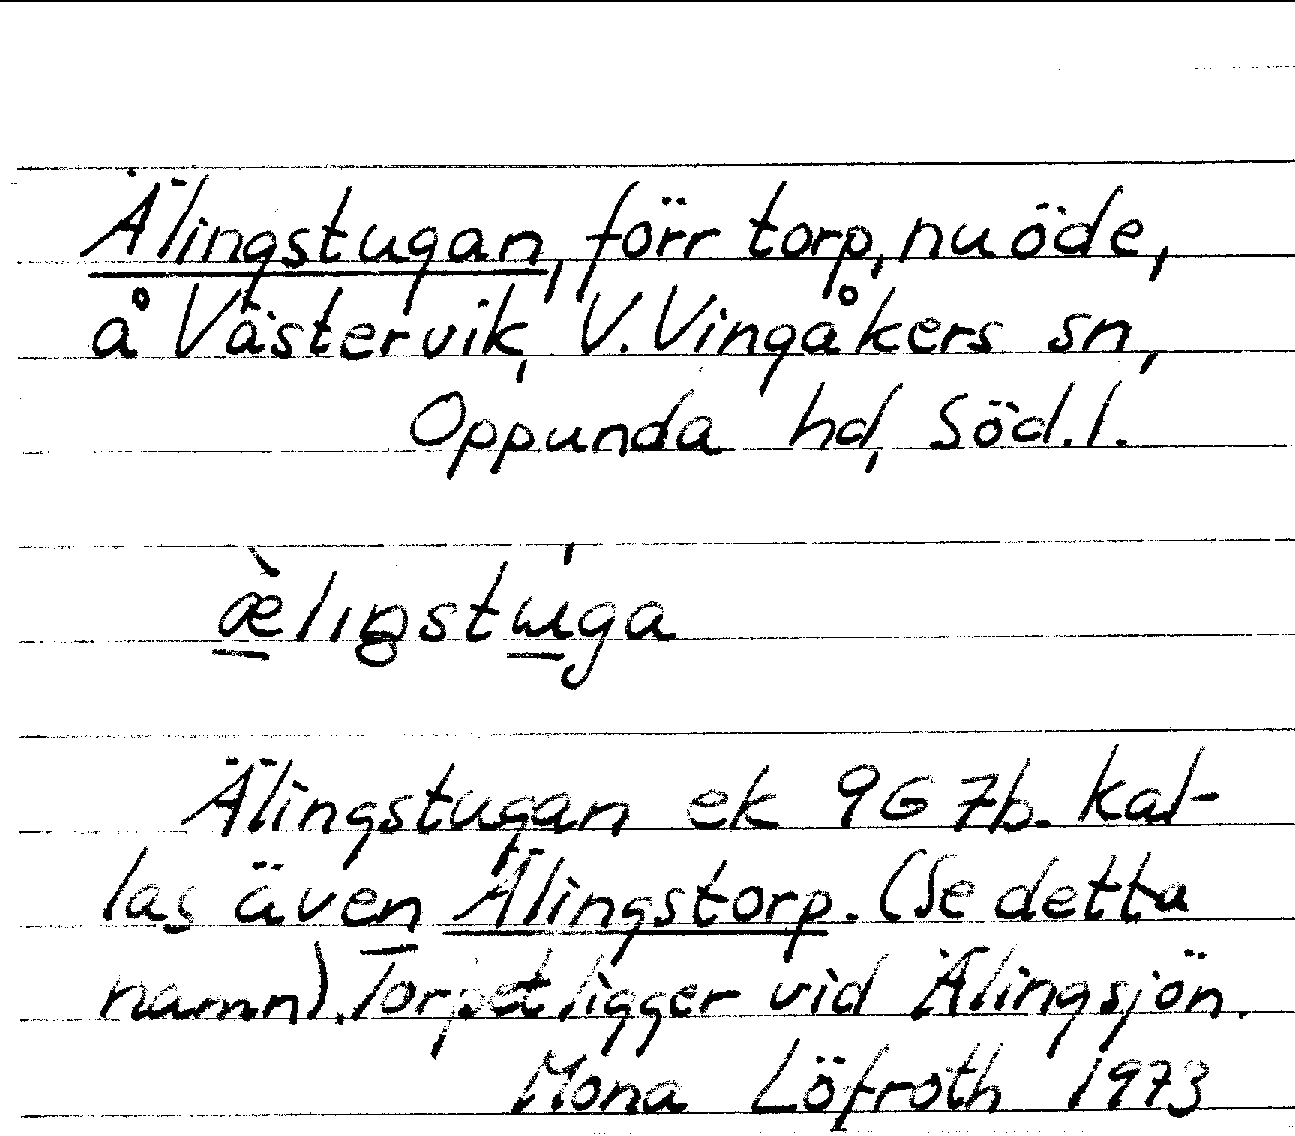 Älingstugan, förr torp, nu öde,
å Västervik, V. Vingåkers sn,
Oppunda hd, Söd.l.
æ̀lıŋstɯ́ga
Älingstugan ek 9G 7b. kal-
las även Älingstorp. (Se detta
namn). Torpet ligger vid Älingsjön.
Mona Löfroth 1973